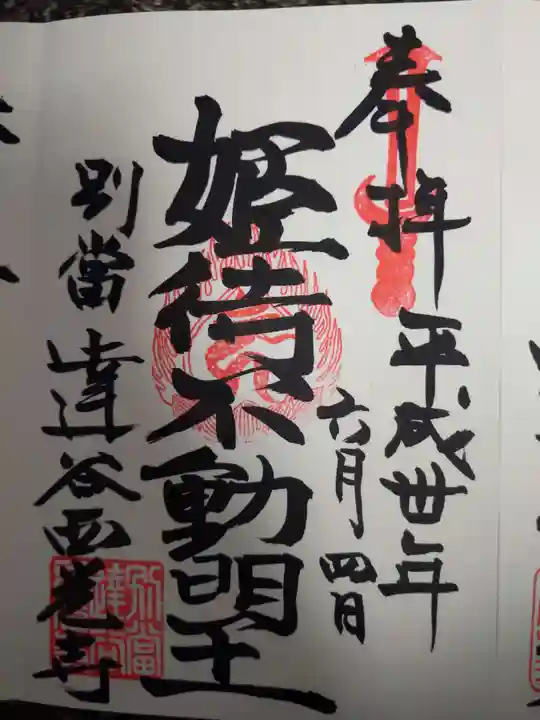 奉拝
平成卅年
六月四日
姫待不動明王
別當達谷西光寺
別當達